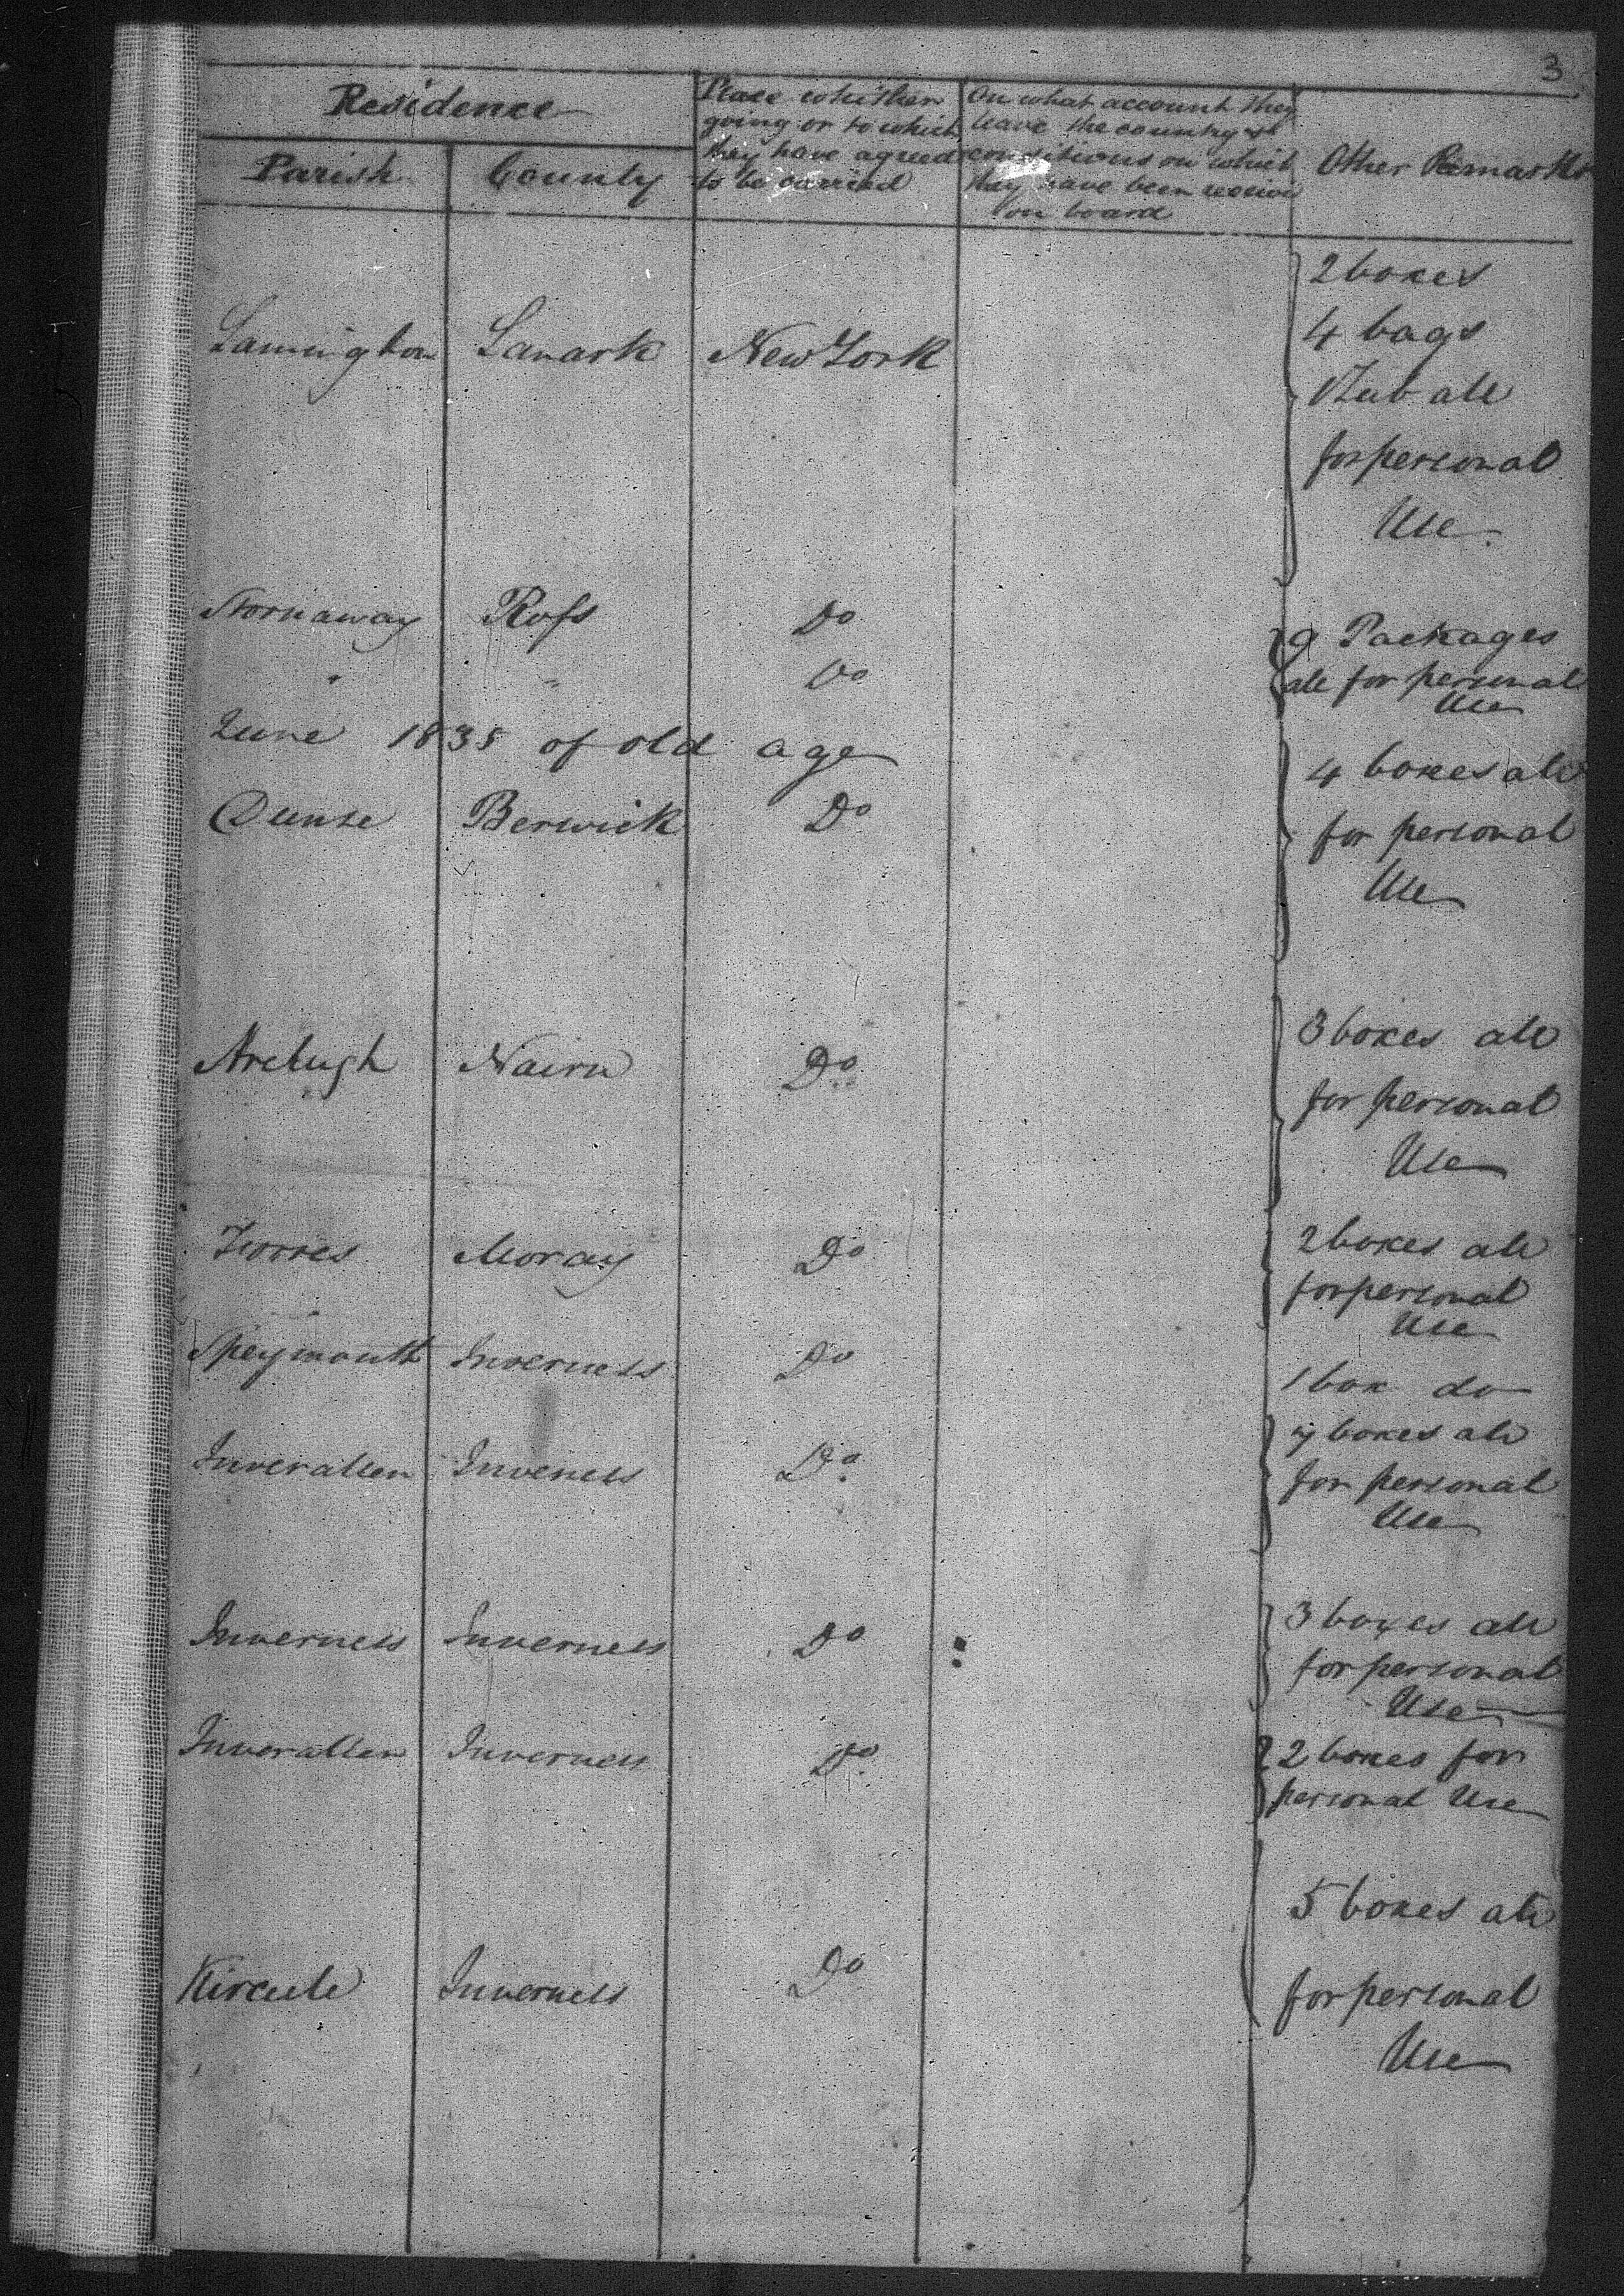 3
Residence
Parish County
Place whither
going or to which
they have agreed
to be carried
On what account they
leave the country &
conditions on which
they have been receive
on board
Other Remarks
2 boxes
4 bags
Lamington Lanark New York
1 Tub all
for personal
Use.
Stornaway Ross Do
9 Packages
" " Do all for personal
Use
June 1835 of old age
4 boxes all
Dunse Berwick Do for personal
Use
3 boxes all
Nairn Do
for personal
Use
Forres Moray Do 2 boxes all
for personal
Use
Speymouth Inverness Do
1 box do
boxes all
Inverallen Inverness Do for personal
Use
Inverness Inverness Do 3 boxes all
for personal
Use
Inverallen Inverness Do 2 boxes for
personal Use
5 boxes all
Inverness Do
for personal
Use